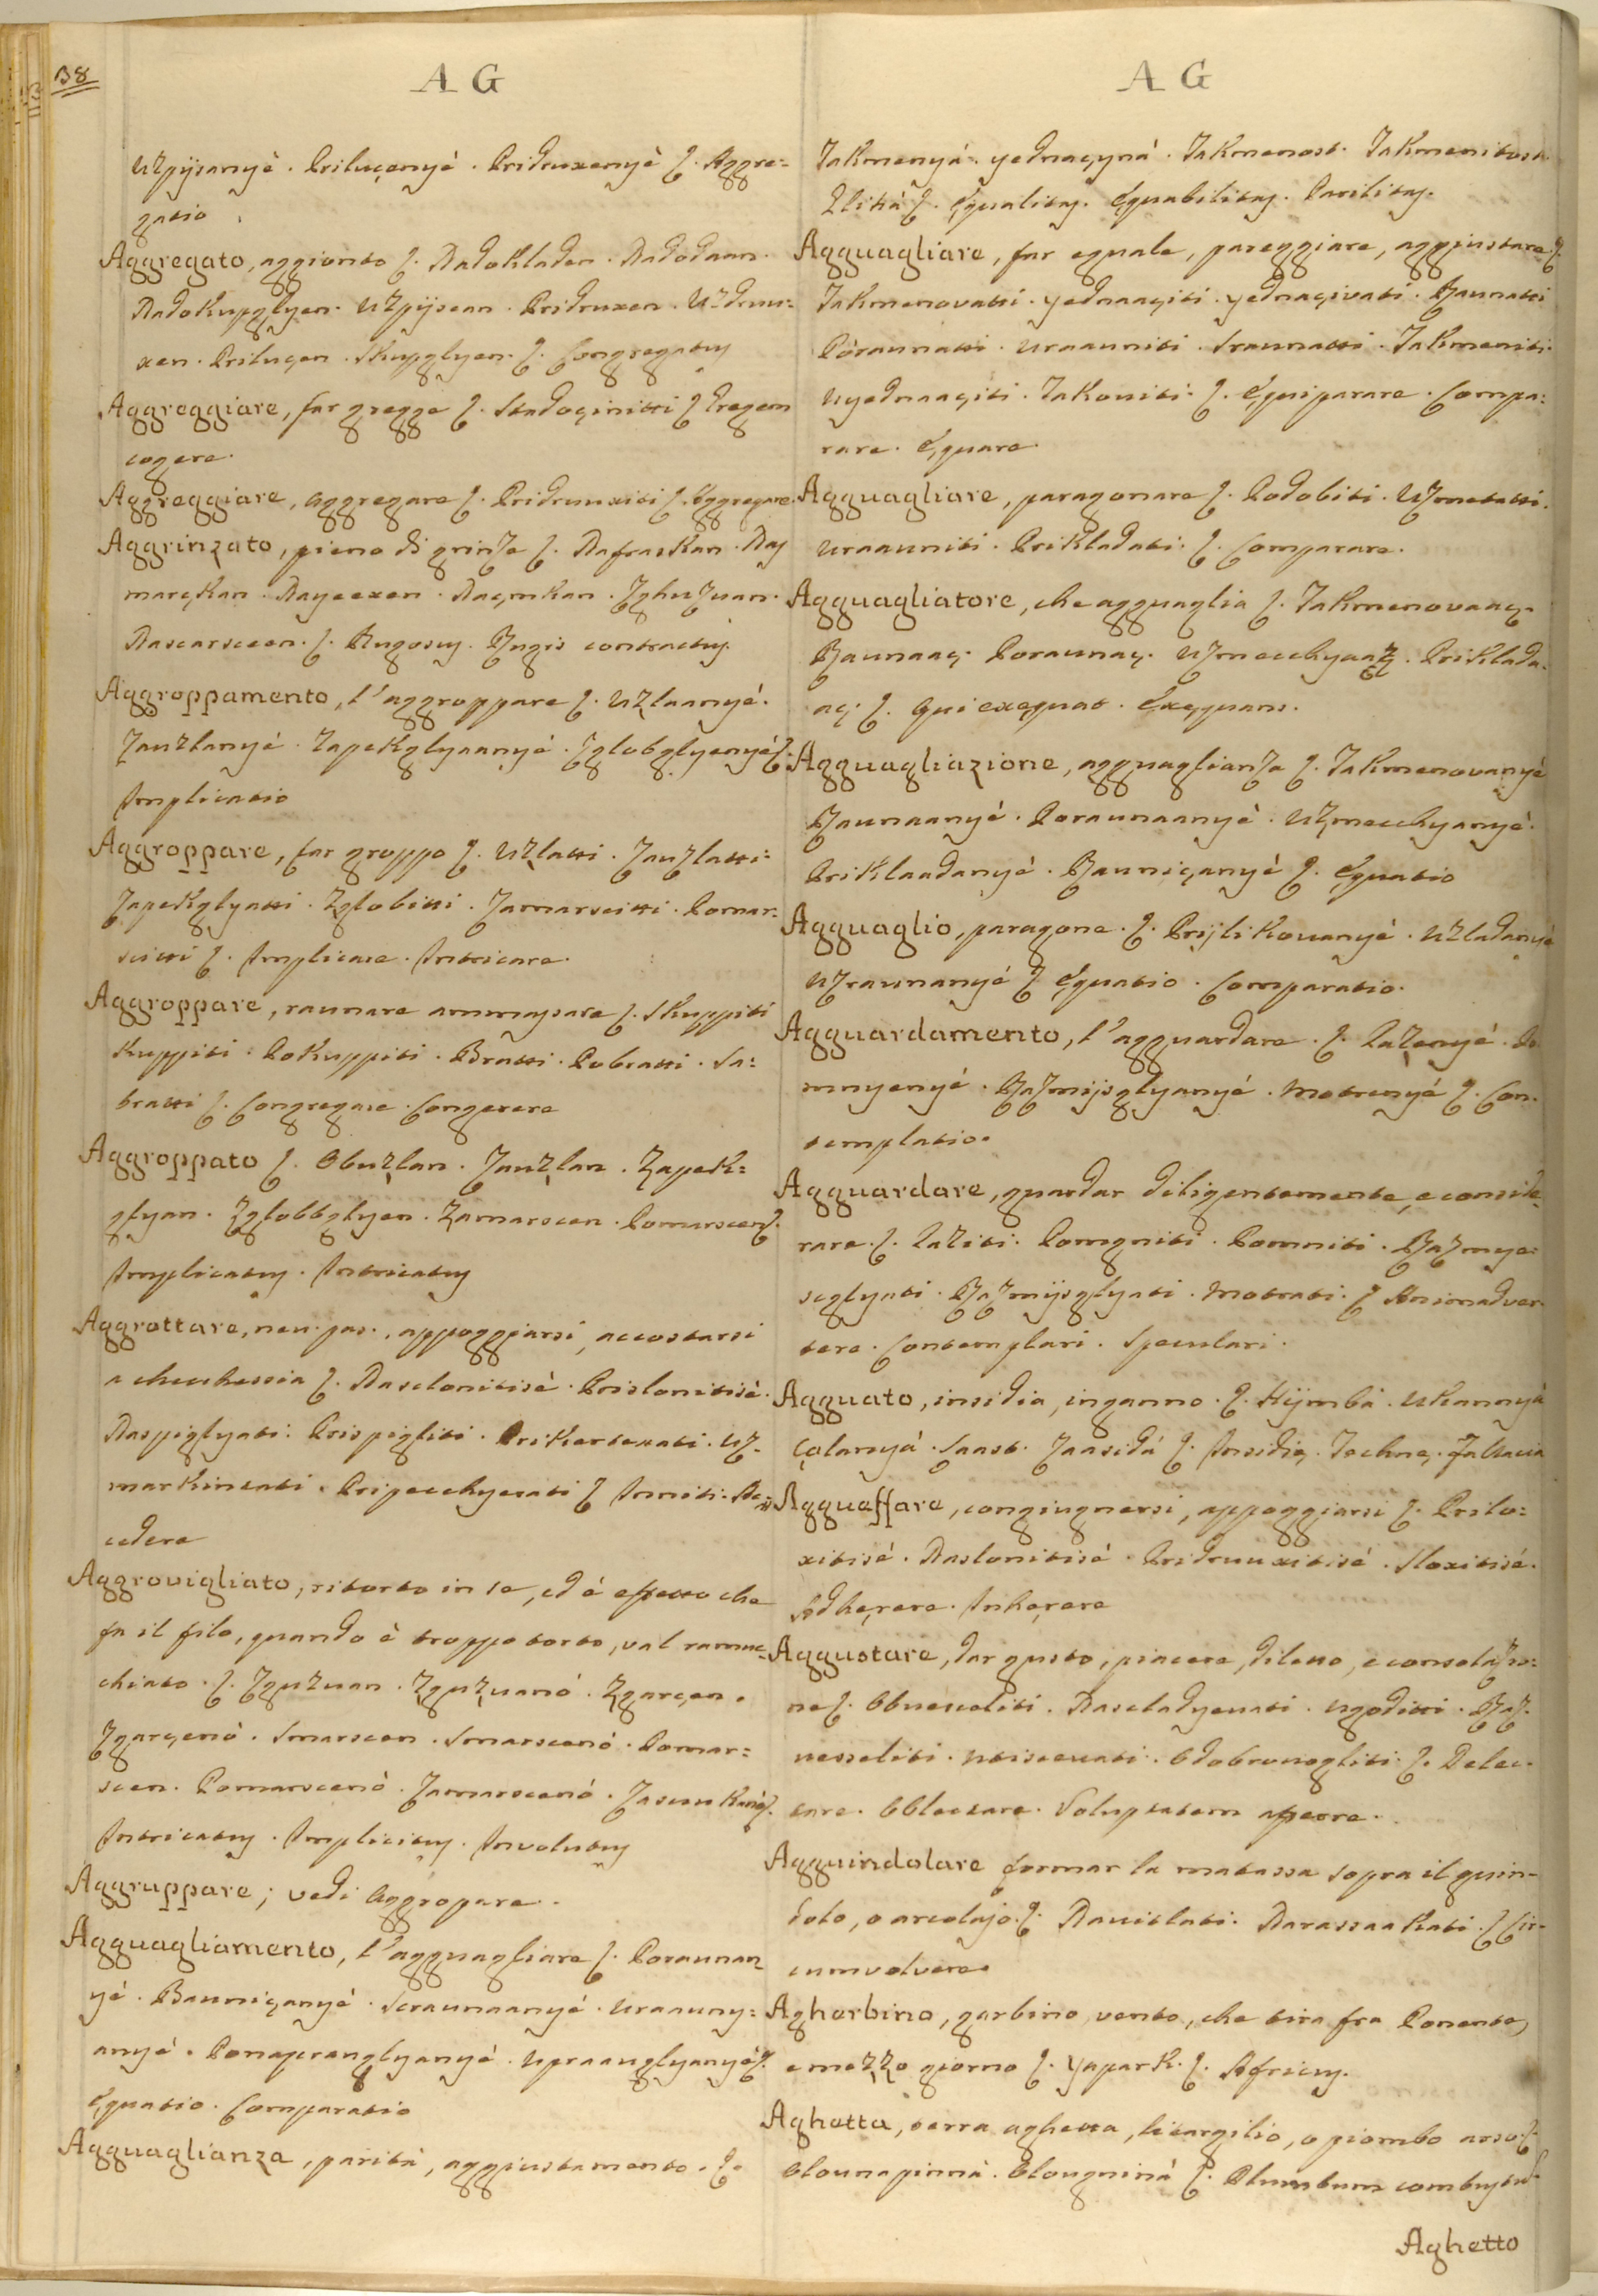 38
A G
Uzpijsanyè. Prilucenyè. Pridruxenyè ʃ. Aggre=
gatio
Aggregato, aggionto ʃ. Nadokladen. Nadodaan.
Nadokupglyen. Uzpijsan. Pridruxen. Uzdruu=
xen. Prilucen. Skupglyen. ʃ. Congregatus
Aggreggiare, far gregge ʃ. Stadocinitti ʃ Gregem
cogere.
Aggreggiare, aggregare ʃ. Pridruuxiti ʃ. Aggregare.
Aggrinzato, pieno di grinze ʃ. Nafraskan. Nas
marçkan. Nayeexen. Naçmkan. Zghuzuan.
Nascarsceen. ʃ. Rugosus. Rugis contractus.
Aggroppamento, l'aggroppare ʃ. Uzlaanyè.
Zauzlanyè. Zapekglyaanyè. Zglobglyenyè ʃ.
Implicatio
Aggroppare, far groppo ʃ. Uzlatti. Zauzlatti.
Zapekglyatti. Zglobitti. Zamarscitti. Pomar=
scitti ʃ. Implicare. Intricare.
Aggroppare, raunare ammassare ʃ. Skuppiti
Kuppiti. Pokuppiti. Bratti. Pobratti. Sa=
bratti ʃ. Congregare. Congerere
Aggroppato ʃ. Obuzlan. Zauzlan. Zapek=
glyan. Zglobbglyen. Zamarscen. Pomarscen ʃ.
Implicatus. Intricatus
Aggrottare, neu. pas., appoggiarsi, accostarsi
a checchessia ʃ. Naslonitisè. Prislonitisè.
Naspiglyati. Prispigliti. Prikertexati. Uz=
markintati. Pripecchyerati ʃ Inniti. Ac=
cedere
Aggrovigliato, ritorto in se, ed è effetto che
fa il filo, quando è troppo torto, val rannic=
chiato. ʃ. Zguzuan. Zguzuanò. Zgarçen.
Zgarçenò. Smarscen. Smarscenò. Pomar=
scen. Pomarscenò. Zamarscenò. Zascunkanò ʃ.
Intricatus. Implicitus. Involutus
Aggruppare; vedi Aggropare.
Agguagliamento, l'agguagliare ʃ. Poraunan
yè. Rauniçanyè. Scraunaanyè. Uraauny=
anyè. Ponapranglyanyè. Upraanglyanyè ʃ.
Equatio. Comparatio
Agguaglianza, parità, aggiustamento. ʃ.
A G
Takmenyà. yednaçynà. Takmenost. Takmenitost.
Zlikà ʃ. Equalitas. Equabilitas. Parilitas.
Agguagliare, far eguale, pareggiare, aggiustare ʃ.
Takmenovatti. yednaaçiti. yednaçivati. Raunatti
Pòraunatti. Uraauniti. Sraunatti. Takmeniti.
Uyednaaçiti. Takouiti. ʃ. Equiparare. Compa=
rare. Equare.
Agguagliare, paragonare ʃ. Podobiti. Uzmetatti.
Uraauniti. Prikladati. ʃ. Comparare.
Agguagliatore, che agguaglia ʃ. Takmenovaaç.
Raunaaç. Poraunaç. Uzmecchyaaç. Priklada=
aç ʃ. Qui exequat. Exequans.
Agguagliazione, agguaglianza ʃ. Takmenovanyè
Raunaanyè. Poraunaanyè. Uzmecchyanyè.
Priklaadanyè. Rauniçanyè ʃ. Equatio
Agguaglio, paragone. ʃ. Prijlikouanyè. Uzladanyè
Uzraunanyè ʃ Equatio. Comparatio.
Agguardamento, l'agguardare. ʃ. Pazenyè. Po
mnyenyè. Razmijsglyanyè. Motrenyè ʃ. Con=
templatio.
Agguardare, guardar diligentemente, e conside=
rare. ʃ. Paziti. Pomgniti. Pomniti. Razmye=
scglyati. Razmijsglyati. Motrati. ʃ Animadver=
tere. Contemplari. Speculari.
Agguato, insidia, inganno. ʃ. Hijmbà. Ukannyà
Çolanyà. Laast. Zaasidà ʃ. Insidię. Technę. Fallacia
Agguaffare, congiugnersi, appoggiarsi ʃ. Prilo=
xitisè. Naslonitisè. Pridruuxitisè. Sloxitisè.
Adherere. Inherere
Aggustare, dar gusto, piacere, diletto, e consolazio=
ne ʃ. Obueseliti. Nascladyeuati. Ugoditti. Raz=
uesseliti. Utisceuati. Odobrouogliti ʃ. Delec=
tare. Oblectare. Voluptatem afferre.
Agguindolare formar la matassa sopra il guin=
dolo, o arcolajo. ʃ. Nauitlati. Narassaakati. ʃ Cir=
cumvolvere.
Agherbino, garbino vento, che tira fra Ponente,
e mezzo giorno ʃ. Yapark. ʃ. Africus.
Aghetta, terra aghetta, litargilio, o piombo arso ʃ.
Olounapinnà. Olougninà ʃ. Plumbum combustu
Aghetto